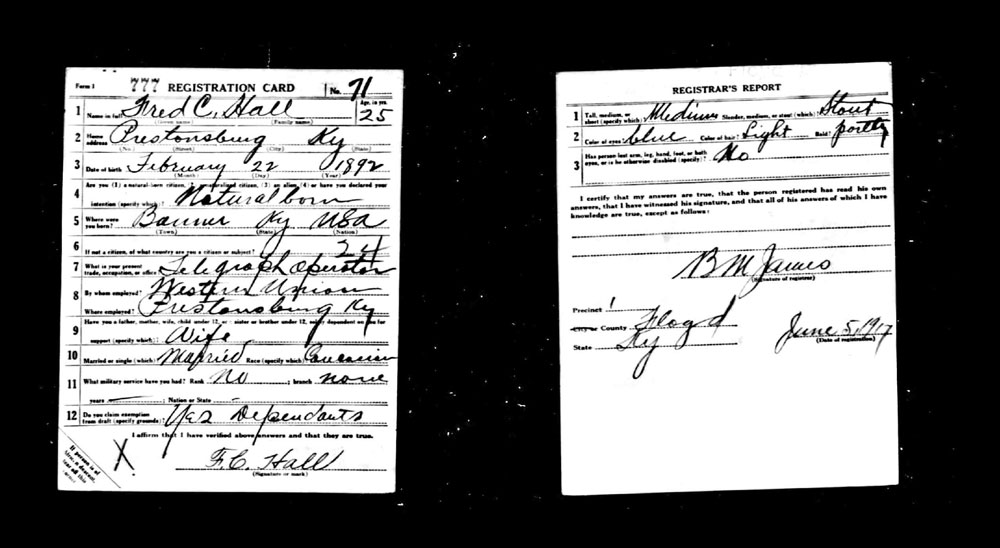 Form 1 777 REGISTRATION CARD No. 71
1 Name in full Fred C. Hall Age, in yrs. 25
(Given name) (Family name)
2 Home address Prestonsburg Ky
(No.) (Street) (City) (State)
3 Date of birth February 22 1892
(Month) (Day) (Year)
Are you (1) a natural-born citizen, (2) a naturalized citizen, (3) an alien, (4) or have you declared your
4 intention (specify which)? Natural born
5 Where were you born? Banner Ky USA
(Town) (State) (Nation)
6 If not a citizen, of what country are you a citizen or subject? 24
7 What is your present trade, occupation, or office? Telegraph Operator
8 By whom employed? Western Union
Where employed? Prestonsburg Ky
9 Have you a father, mother, wife, child under 12, or sister or brother under 12, solely dependent on you for
support (specify which)? Wife
10 Married or single (which)? Married Race (specify which)? Caucasian
11 What military service have you had? Rank No ; branch none
years — ; Nation or State
12 Do you claim exemption from draft (specify grounds)? Yes Dependants
I affirm that I have verified above answers and that they are true.
X. F.C. Hall
(Signature or mark)
If person is of
tear off this
corner
REGISTRAR'S REPORT
1 Tall, medium, or short (specify which)? Medium Slender, medium, or stout (which)? Stout
2 Color of eyes? blue Color of hair? Light Bald? partly
3 Has person lost arm, leg, hand, foot, or both eyes, or is he otherwise disabled (specify)? No
I certify that my answers are true, that the person registered has read his own
answers, that I have witnessed his signature, and that all of his answers of which I have
knowledge are true, except as follows:
B M James
(Signature of registrar)
Precinct 1
City or County Floyd
State Ky June 5, 1917
(Date of registration)